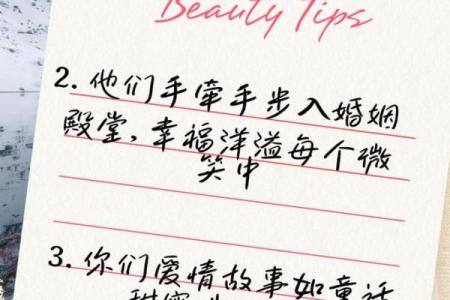 Beauty Tips
2. 他们手牵手步入婚姻
殿堂, 幸福洋溢每个微
笑中
3. 你们爱情故事如童话